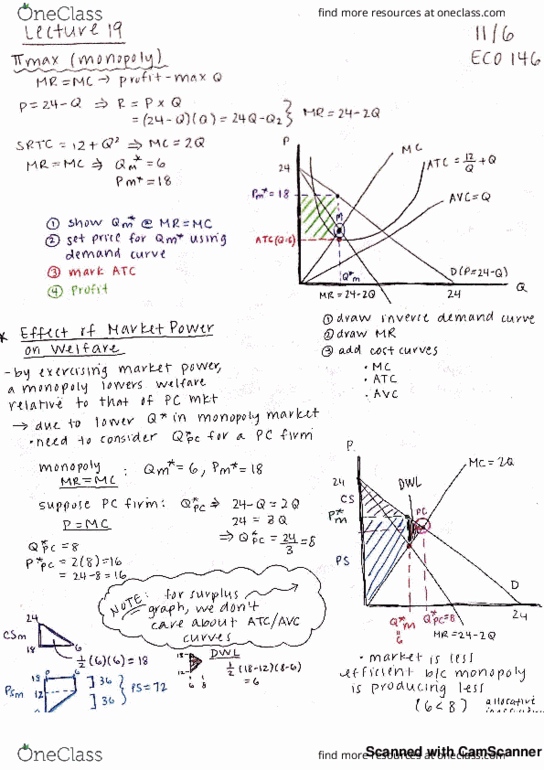 OneClass
find more resources at oneclass.com
Lecture 19
11/6
ECO 146
πmax (monopoly)
MR = MC → profit-max Q
P = 24-Q ⇒ R = P x Q
= (24-Q)(Q) = 24Q-Q2 } MR = 24-2Q
SRTC = 12 + Q² ⇒ MC = 2Q
MR = MC ⇒ Qm* = 6
Pm* = 18
① show Qm* @ MR = MC
② set price for Qm* using
demand curve
③ mark ATC
④ Profit
P
24
Pm* = 18
ATC(Q=6)
M
MC
ATC = 12/Q + Q
AVC = Q
Q*m
D(P=24-Q)
MR = 24-2Q
24
Q
① draw inverse demand curve
② draw MR
③ add cost curves
• MC
• ATC
• AVC
* Effect of Market Power
on Welfare
- by exercising market power,
a monopoly lowers welfare
relative to that of PC mkt
→ due to lower Q* in monopoly market
• need to consider Q*pc for a PC firm
monopoly
MR = MC : Qm* = 6, Pm* = 18
suppose PC firm: Q*pc ⇒ 24-Q = 2Q
P = MC
24 = 3Q
⇒ Q*pc = 24/3 = 8
Q*pc = 8
P*pc = 2(8) = 16
= 24-8 = 16
P
24
CS
P*m
PS
DWL
PC
MC = 2Q
D
Q*m
6
Q*pc = 8
24
MR = 24-2Q
NOTE: for surplus
graph, we don't
care about ATC/AVC
curves
CSm
24
18
6
½(6)(6) = 18
PSm
18
12
P
6
] 36
] 36
} PS = 72
DWL
18
12
6 8
½(18-12)(8-6)
= 6
• market is less
efficient b/c monopoly
is producing less
(6<8) allocative
Scanned with CamScanner
OneClass
find more resources at oneclass.com